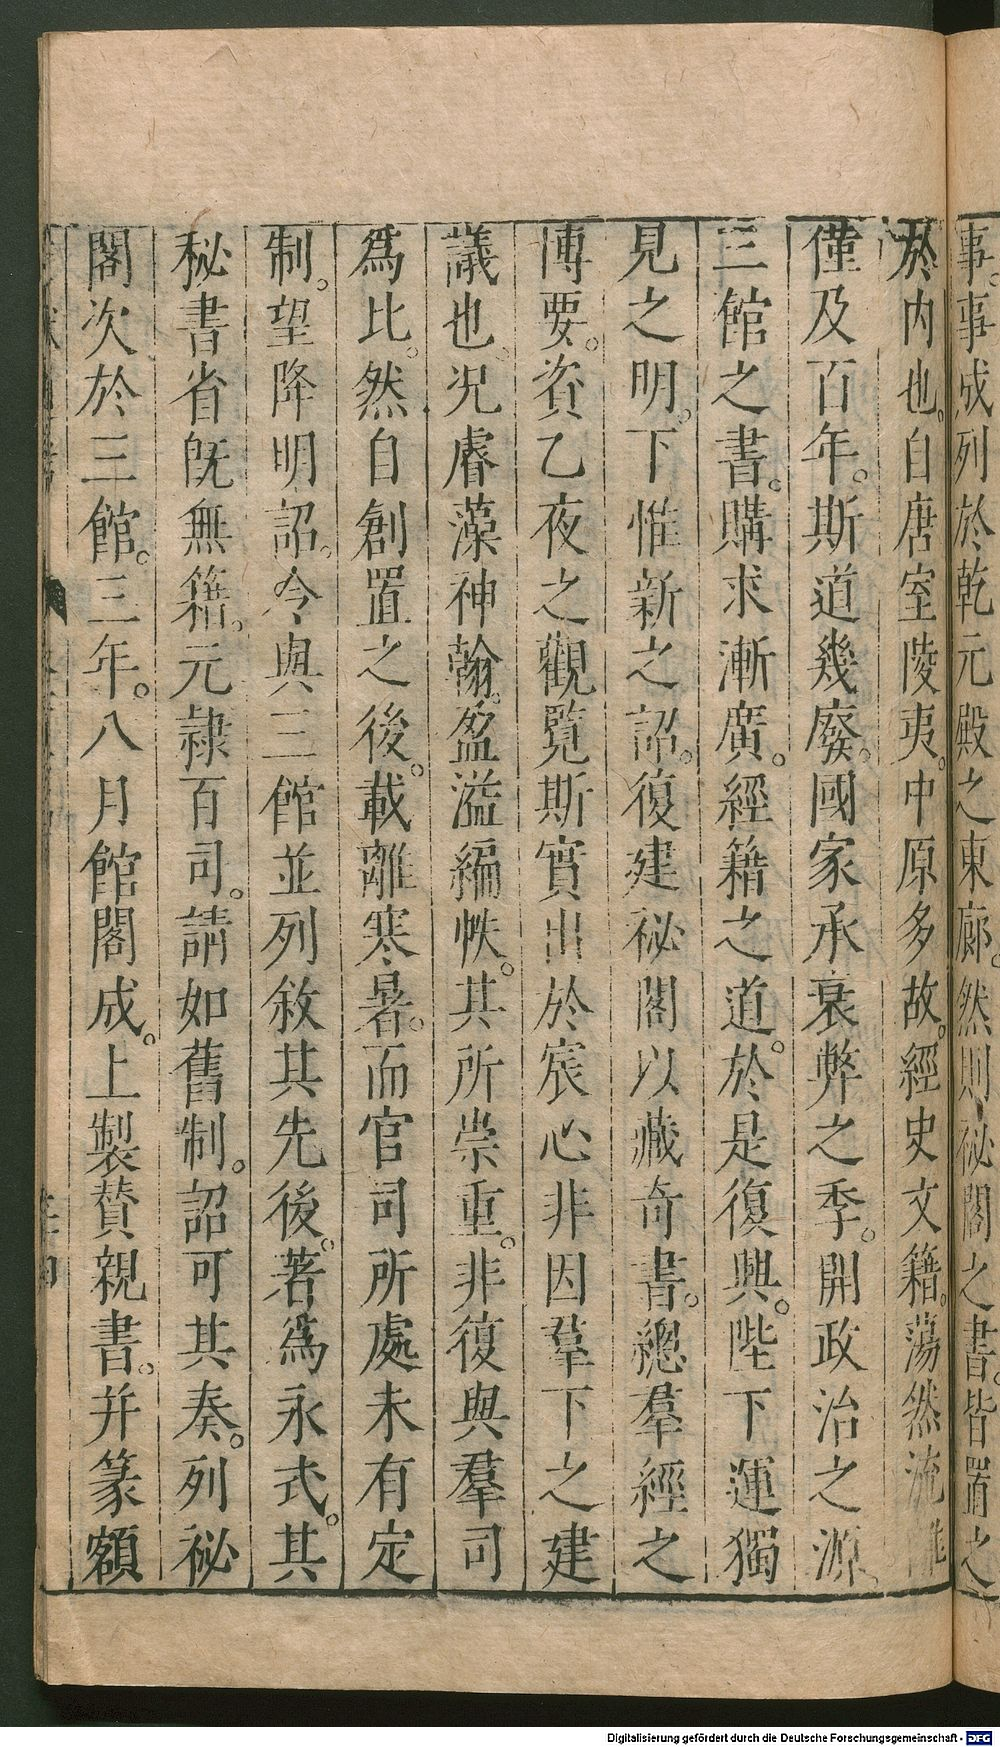 事。事成列於乾元殿之東廊。然則祕閣之書。皆置之
於內也。自唐室陵夷。中原多故。經史文籍。蕩然流離
僅及百年。斯道幾廢。國家承衰弊之季。開政治之源。
三館之書。購求漸廣。經籍之道。於是復興。陛下運獨
見之明。下惟新之詔。復建祕閣以藏奇書。緫羣經之
博要。資乙夜之觀覽斯實出於宸心非因羣下之建
議也。况睿藻神翰。盈溢編帙。其所崇重。非復與羣司
爲比。然自創置之後。載離寒暑。而官司所處未有定
制。望降明詔。令與三館並列敘其先後。著爲永式。其
秘書省旣無籍。元隷百司。請如舊制。詔可其奏。列祕
閣次於三館。三年。八月館閣成。上製贊親書。并篆額
Digitalisierung gefördert durch die Deutsche Forschungsgemeinschaft - DFG